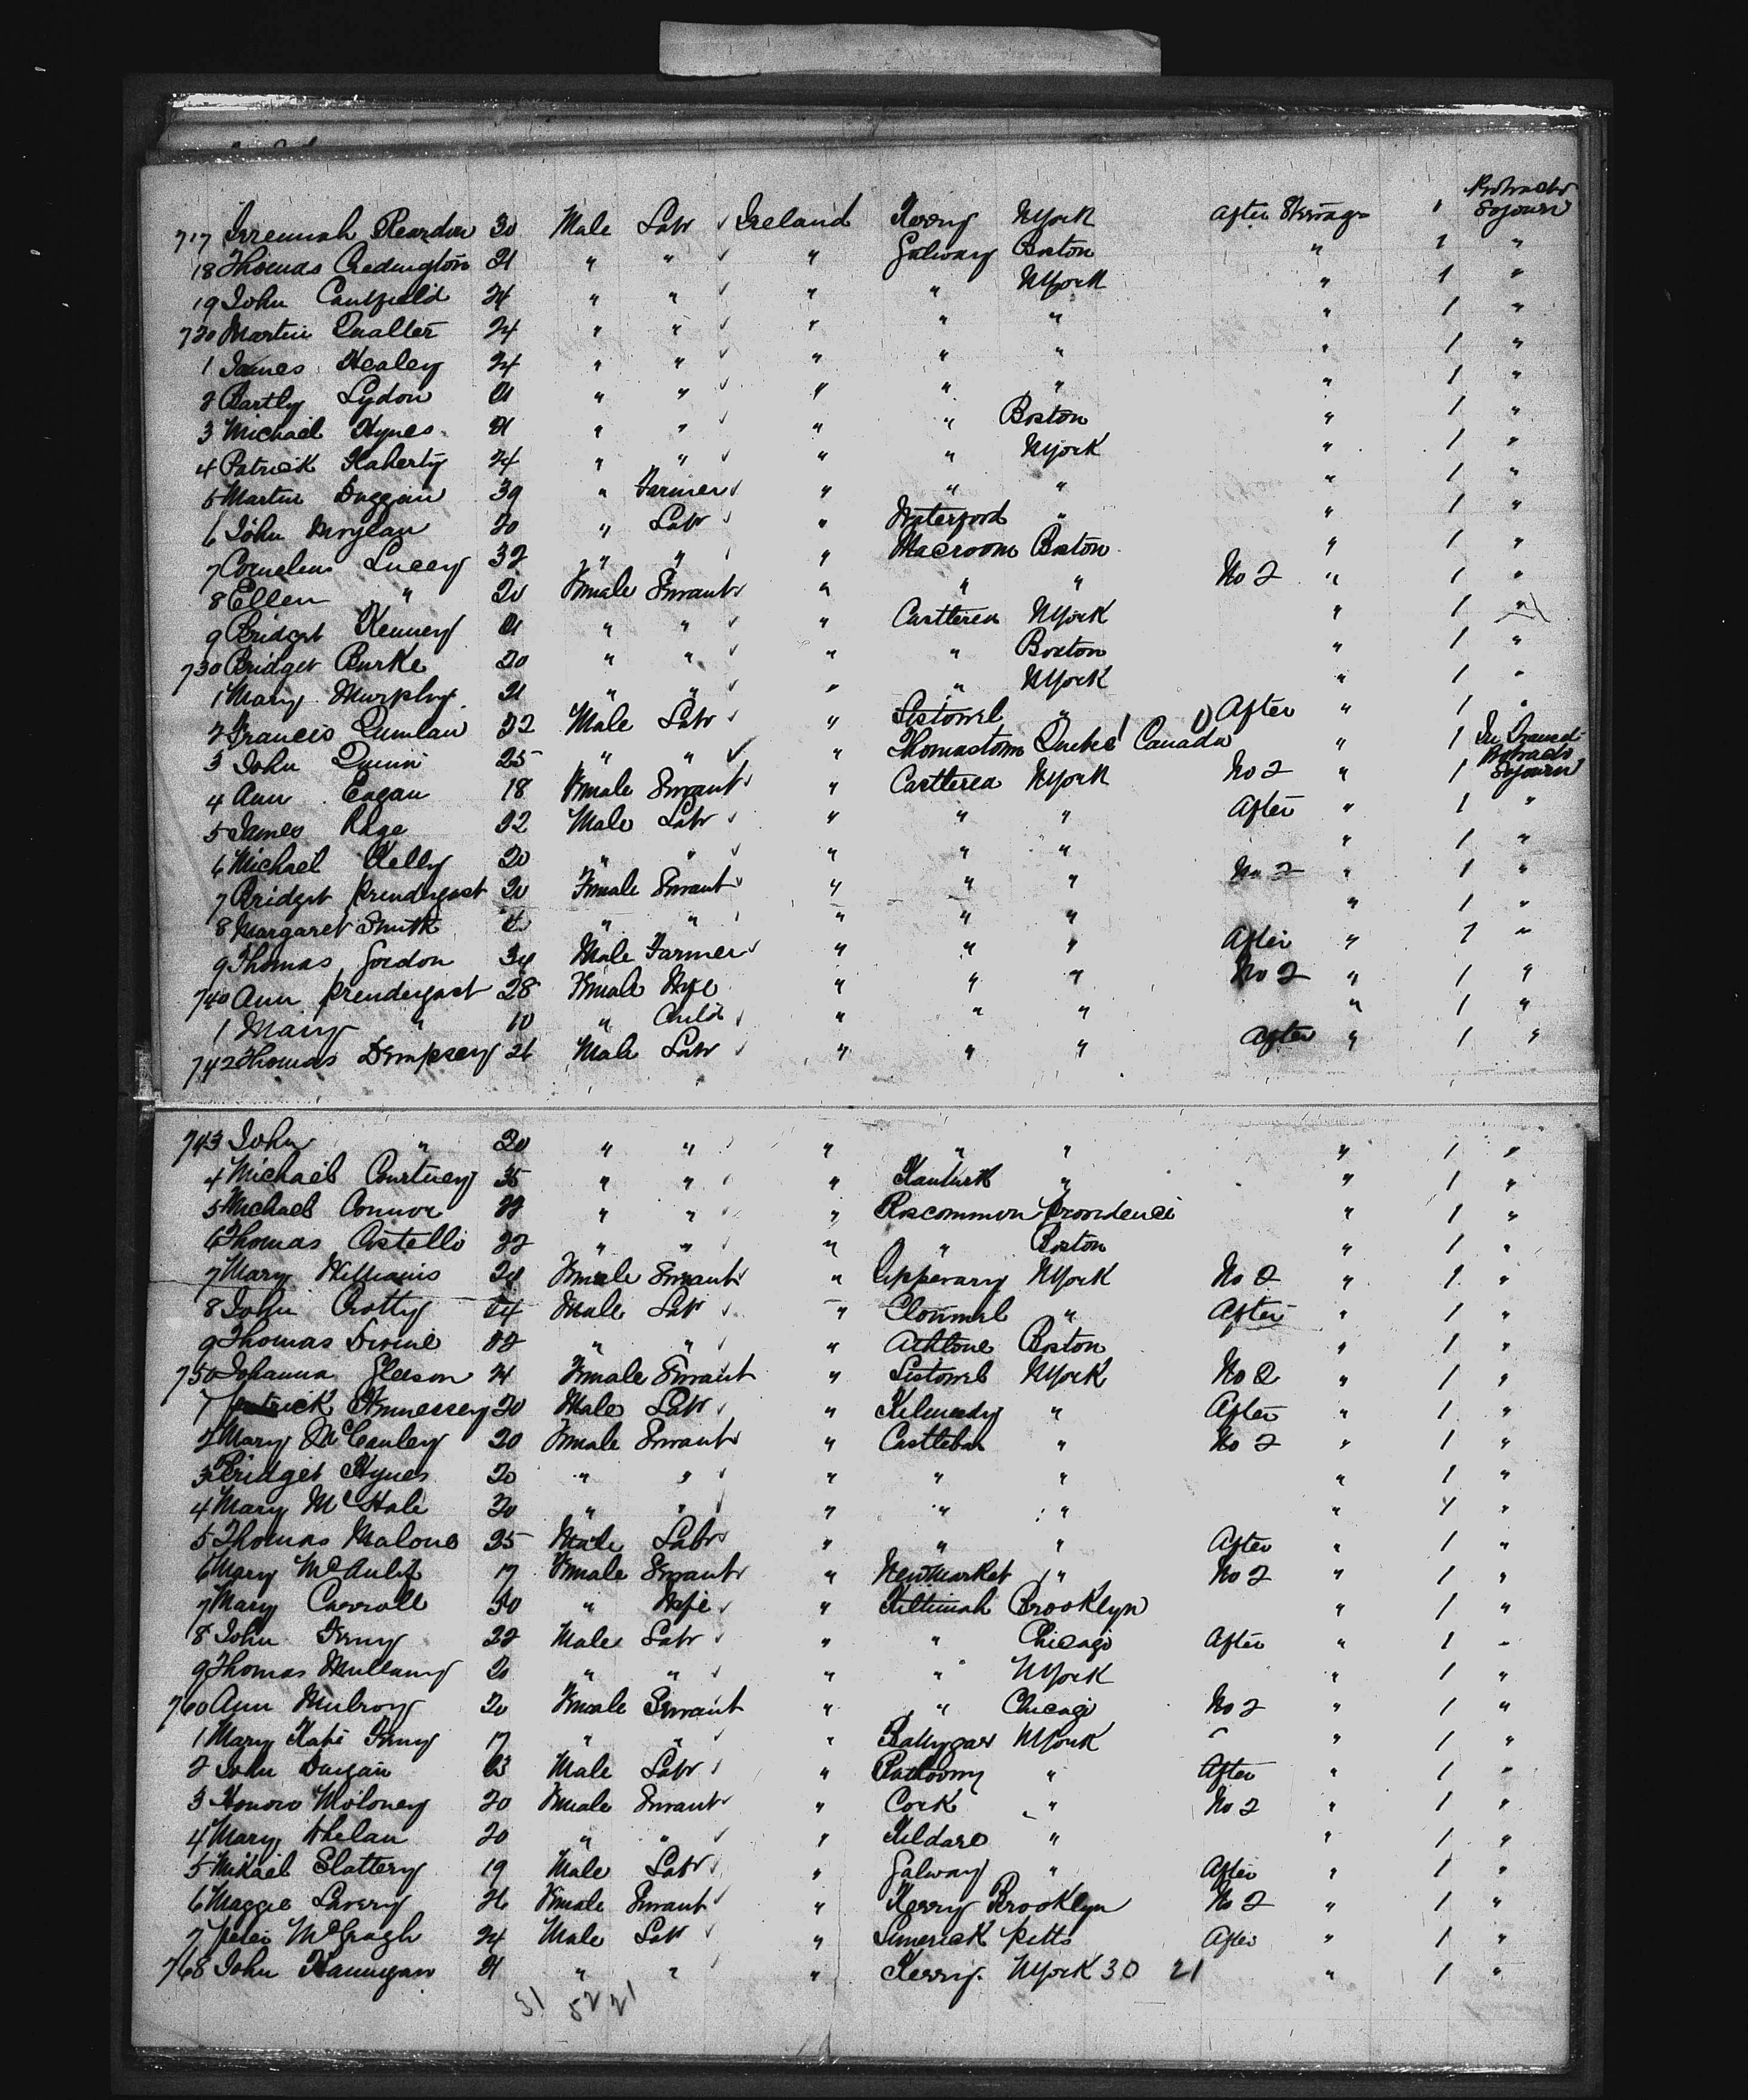 Protracted
717 Jeremiah Reardon 30 Male Labr ✓ Ireland Kerry NYork After Steerage 1 Sojourn
18 Thomas Credington 21 " " ✓ " Galway Boston " 1 "
19 John Caulfield 24 " " ✓ " " NYork " 1 "
720 Martin Qualter 24 " " ✓ " " " " 1 "
1 James Healey 24 " " ✓ " " " " 1 "
2 Bartly Lydon 21 " " ✓ " " " " 1 "
3 Michael Hynes 21 " " ✓ " " Boston " 1 "
4 Patrick Flaherty 24 " " ✓ " " NYork " 1 "
5 Martin Duggan 39 " Farmer ✓ " " " " 1 "
6 John Moylan 20 " Labr ✓ " Waterford " " 1 "
7 Cornelius Lucey 32 " " ✓ " Macroom Boston " 1 "
8 Ellen " 20 Female Servant ✓ " " " No 2 " 1 "
9 Bridget Kenney 21 " " ✓ " Castlerea NYork " 1 "
730 Bridget Burke 20 " " ✓ " " Boston " 1 "
1 Mary Murphy 21 " " ✓ " " NYork " 1 "
2 Francis Quinlan 22 Male Labr ✓ " Listowel " After " 1 "
3 John Quinn 25 " " ✓ " Thomastown Quebec Canada " 1 In Transit
4 Ann Eagan 18 Female Servant ✓ " Castlerea NYork No 2 " 1 Protracted Sojourn
5 James Rhge 22 Male Labr ✓ " " " After " 1 "
6 Michael Kelly 20 " " ✓ " " " " 1 "
7 Bridget Prendergast 20 Female Servant ✓ " " " No 2 " 1 "
8 Margaret Smith " " ✓ " " " " 1 "
9 Thomas Gordon 34 Male Farmer ✓ " " " After " 1 "
740 Ann Prendergast 28 Female Wife " " " No 2 " 1 "
1 Mary " 10 " Child ✓ " " " " 1 "
742 Thomas Dempsey 26 Male Labr ✓ " " " After " 1 "
743 John " 20 " " ✓ " " " " 1 "
4 Michael Courtney 35 " " ✓ " Kanturk " " 1 "
5 Michael Connor 22 " " ✓ " Roscommon Providence " 1 "
6 Thomas Costello 22 " " ✓ " " Boston " 1 "
7 Mary Williams 20 Female Servant ✓ " Tipperary NYork No 2 " 1 "
8 John Crotty 24 Male Labr ✓ " Clonmel " After " 1 "
9 Thomas Devine 22 " " ✓ " Athlone Boston " 1 "
750 Johanna Gleeson 24 Female Servant " Listowel NYork No 2 " 1 "
1 Patrick Hennessey 20 Male Labr ✓ " Kilmeedy " After " 1 "
2 Mary McCauley 20 Female Servant ✓ " Castlebar " No 2 " 1 "
3 Bridget Hynes 20 " " ✓ " " " " 1 "
4 Mary McHale 20 " " ✓ " " " " 1 "
5 Thomas Malone 25 Male Labr ✓ " " " After " 1 "
6 Mary McAuliffe 17 Female Servant ✓ " Newmarket " No 2 " 1 "
7 Mary Carroll 50 " Wife ✓ " Kiltimah Brooklyn " 1 "
8 John Feeny 22 Male Labr ✓ " " Chicago After " 1 "
9 Thomas Mullany 20 " " ✓ " " NYork " 1 "
760 Ann Mulroy 20 Female Servant " " Chicago No 2 " 1 "
1 Mary Kate Feeny 17 " " ✓ " Ballygar NYork " " 1 "
2 John Durgan 23 Male Labr ✓ " " After " 1 "
3 Honora Moloney 20 Female Servant ✓ " Cork " No 2 " 1 "
4 Mary Whelan 20 " " ✓ " Kildare " " 1 "
5 Mikael Slattery 19 Male Labr ✓ " Galway " After " 1 "
6 Maggie Lavery 26 Female Servant ✓ " Kerry Brooklyn No 2 " 1 "
7 Peter McGragh 24 Male Labr ✓ " Limerick Pitts After " 1 "
768 John Hannigan 21 " " ✓ " Kerry NYork 30 21 " 1 "
51 52 21